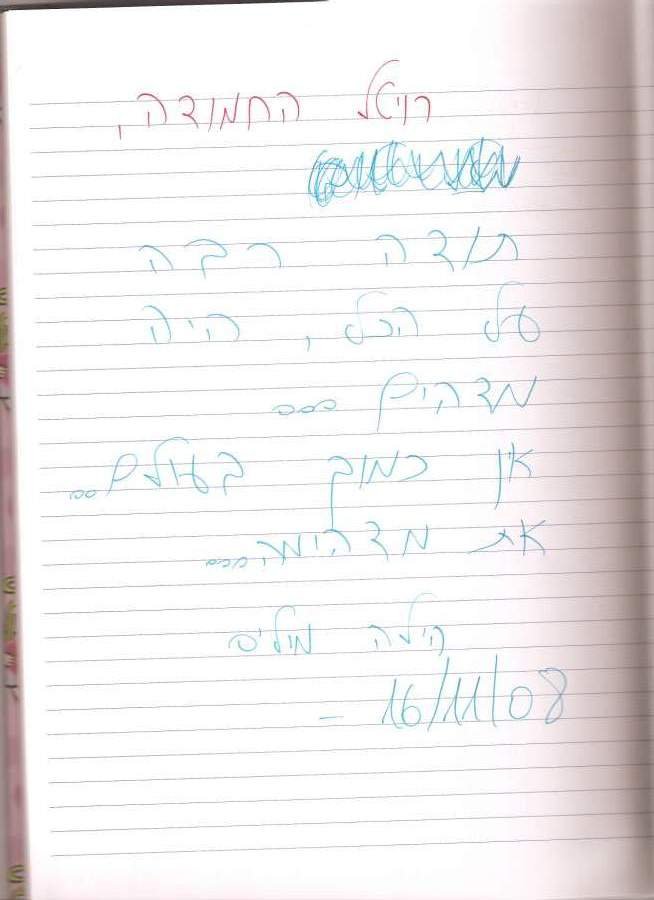 רויטל החמודה,
תודה רבה
על הכל, היה
מדהים ...
אין כמוך בעולם...
את מדהימה....
הילה
16/11/08 -